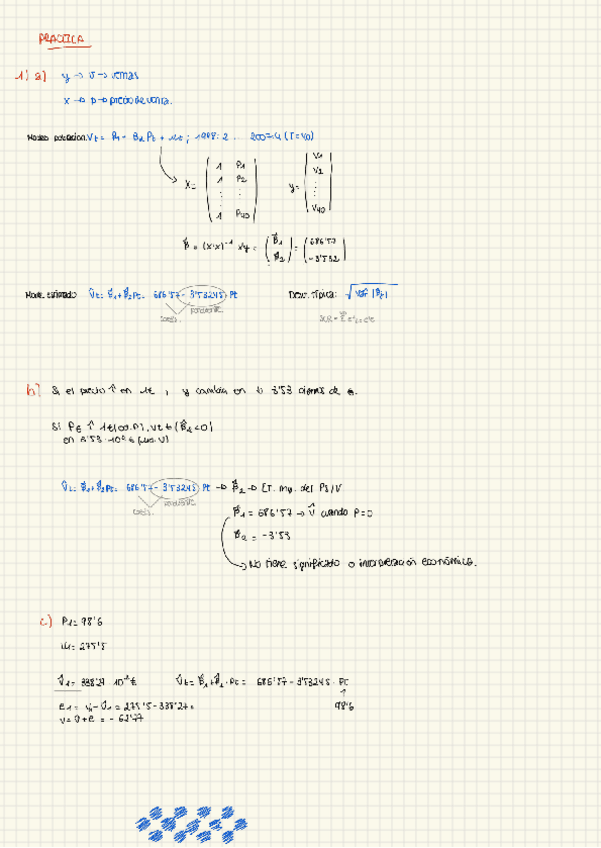 PRACTICA
1) a) y → v → ventas
x → p → precio de venta.
Modelo poblacional: Vt = β1 - β2 Pt + ut ; 1988:2 ... 2007:4 (T=40)
X = ( 1 P1 1 P2 ⋮ ⋮ 1 P40 ) y = ( V1 V2 ⋮ V40 )
β̂ = (X'X)⁻¹ X'y = ( β̂1 β̂2 ) = ( 686'57 -3'532 )
Modelo estimado: V̂t = β̂1 + β̂2 Pt = 686'57 - 3'53248 Pt Desv. típica:
pendiente
b) Si el precio ↑ en 1€ , y cambia en 3'53
Si Pt ↑ 1€ (β̂2<0)
V̂t = β̂1 + β̂2 Pt = 686'57 - 3'53248 Pt → β̂2 →
pendiente
β̂1 = 686'57 → V̂ cuando P=0
β̂2 = -3'53
→ No tiene significado o interpretación económica.
c) P1 = 98'6
= 275'5
V̂1 = 338'27 V̂t = β̂1 + β̂2 · Pt = 686'57 - 3'53248 · Pt
↑
e1 = V1 - V̂1 = 275'5 - 338'27 = 98'6
V = V̂ + e = - 62'77